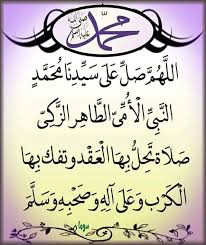 محمد
صلى الله عليه وسلم
اللهم صل على سيدنا محمد
النبي الأمي الطاهر الزكي
صلاة تحل بها العقد وتفك بها
الكرب وعلى آله وصحبه وسلم